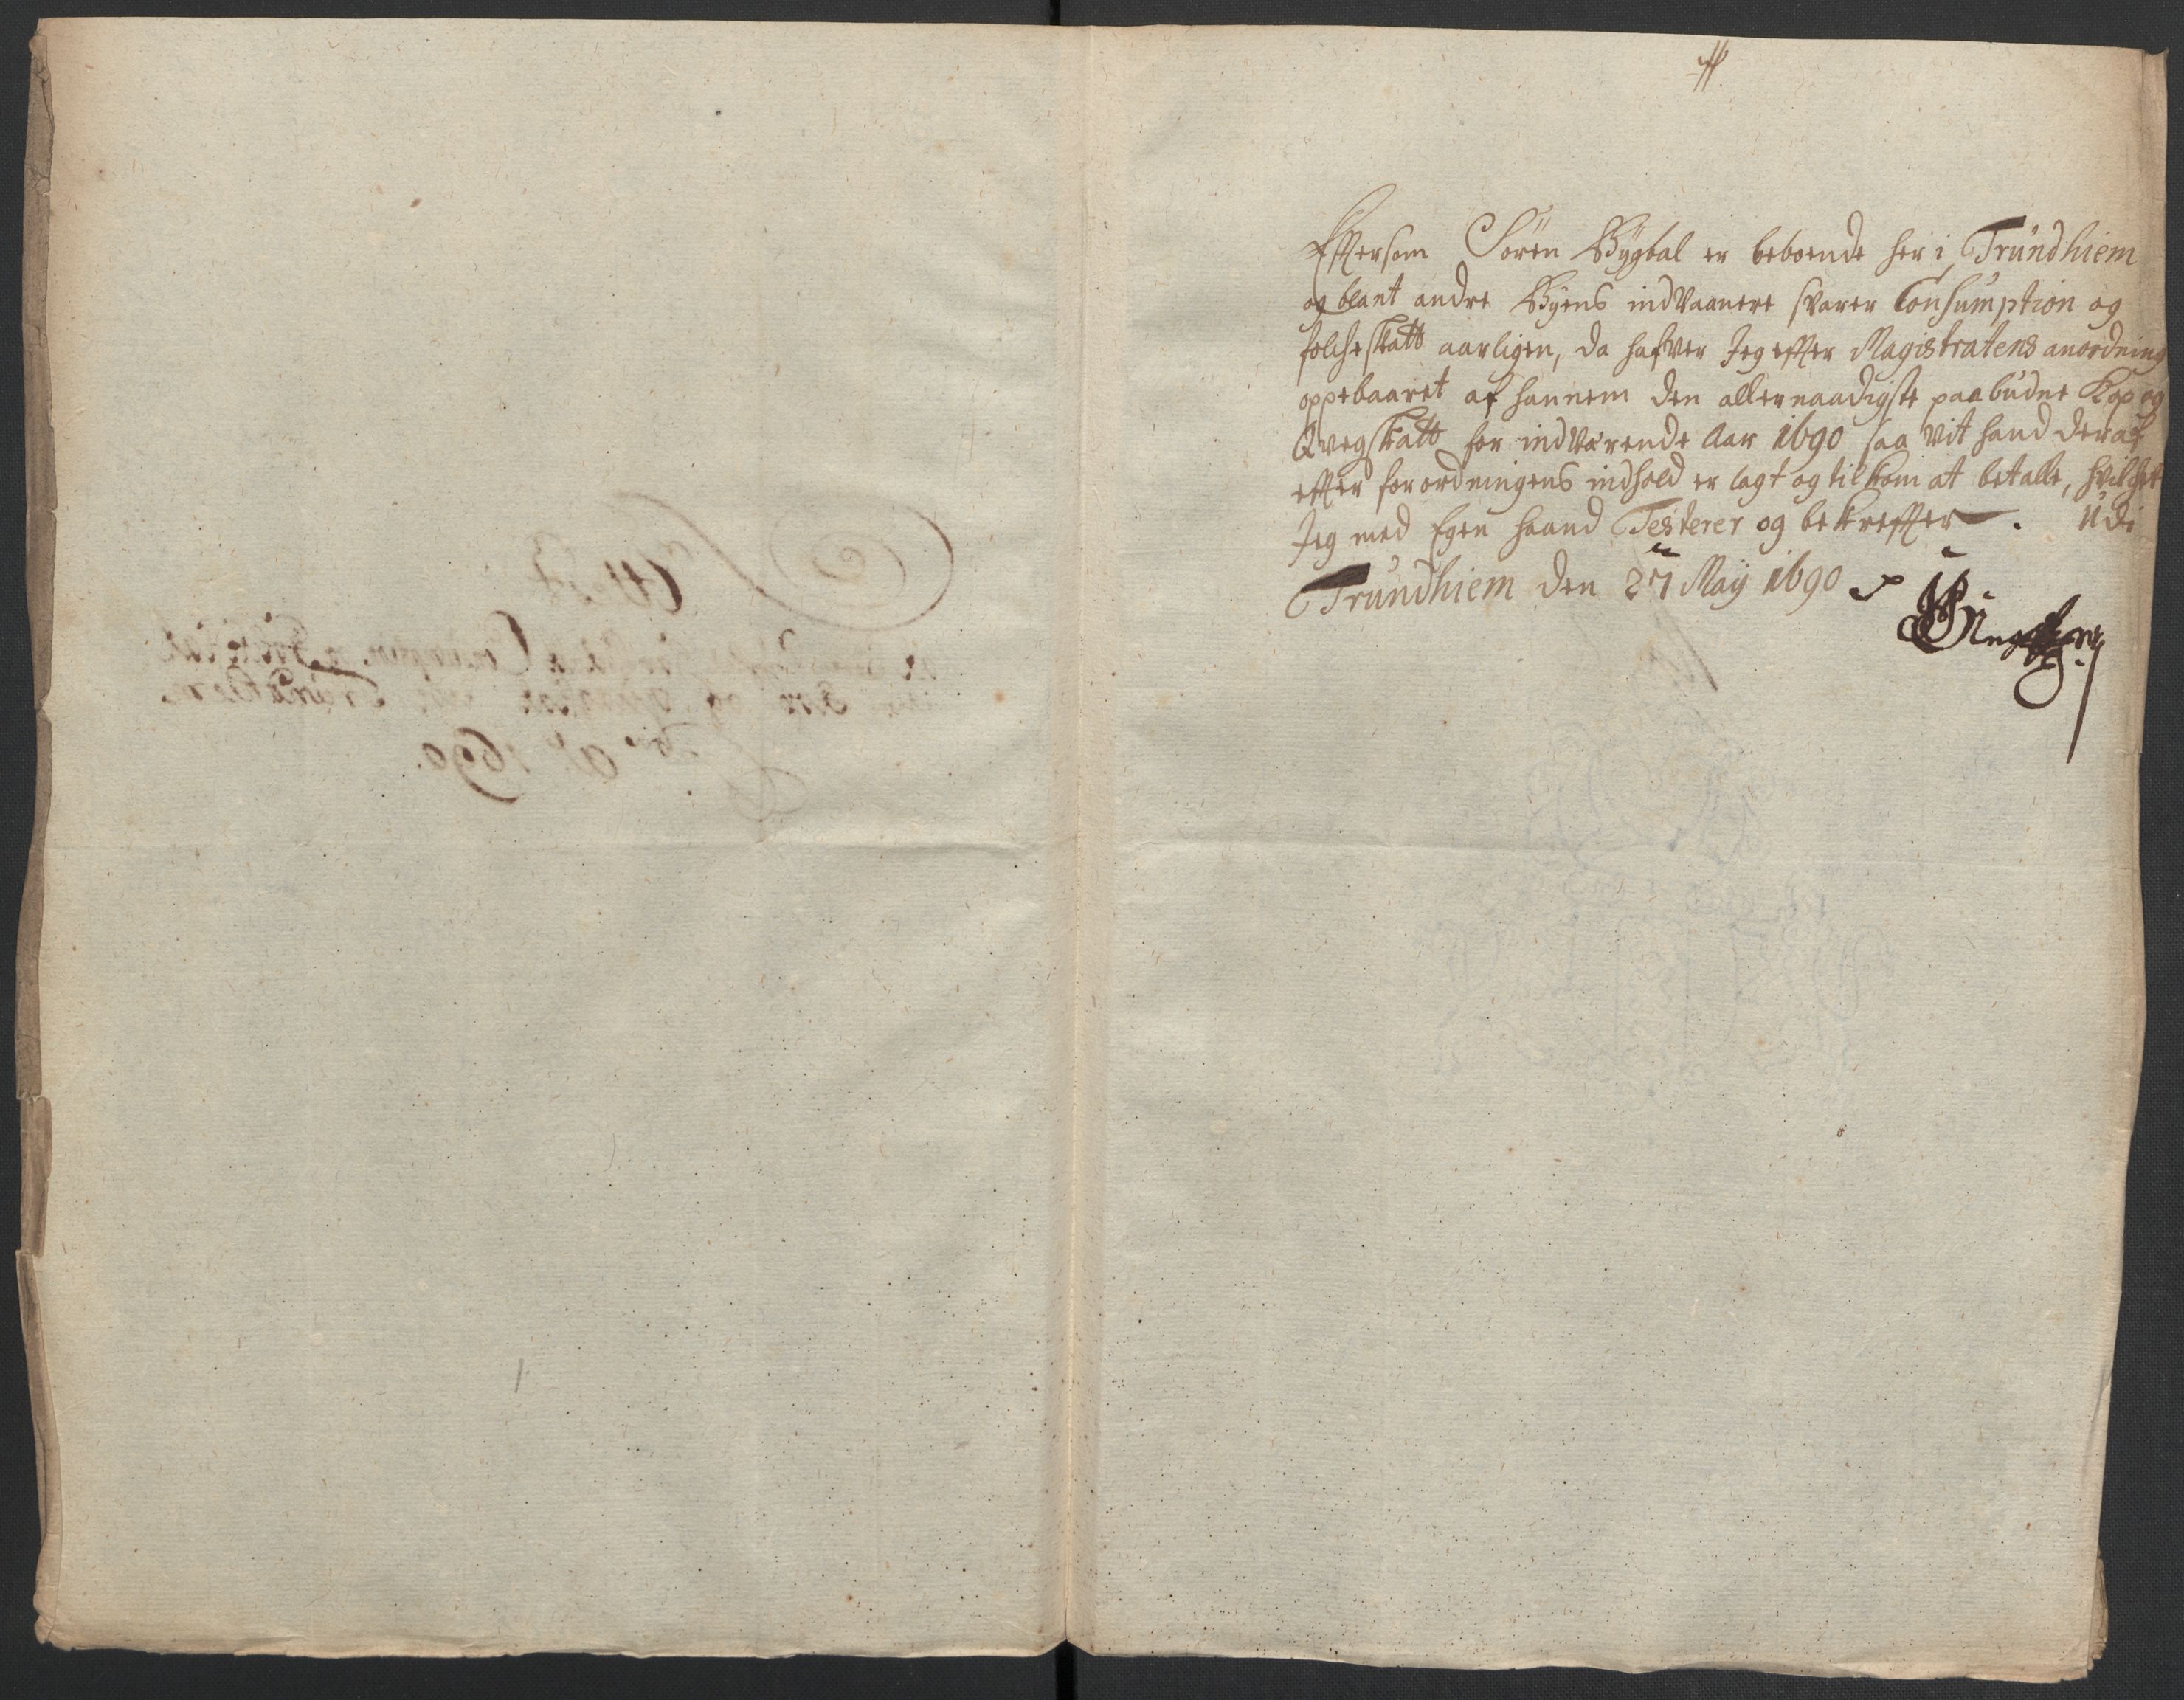 Effter som Sören Bygbal er beboende her i Trundhiem
og blant andre Byens indvaanere svarer Consumption og
folcheskatt aarligen, da hafver Jeg effter Magistratens anordning
oppebaaret af hannem den allernaadigste paabudne Kop og
Qvegskatt for indværende Aar 1690 saa vit hand der af
effter forordningens indhold er lagt og tilkom at betalle, hvilchet
Jeg med Egen haand Testerer og bekreffter. Udi
Trundhiem den 27 Maÿ 1690